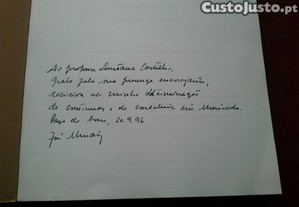 CustoJusto.pt
Ao professor Santana Castilho,
grato pela sua presença encorajante,
decisiva na minha determinação
de continuar e de concluir em
Paço de Arcos, 20.9.96
José